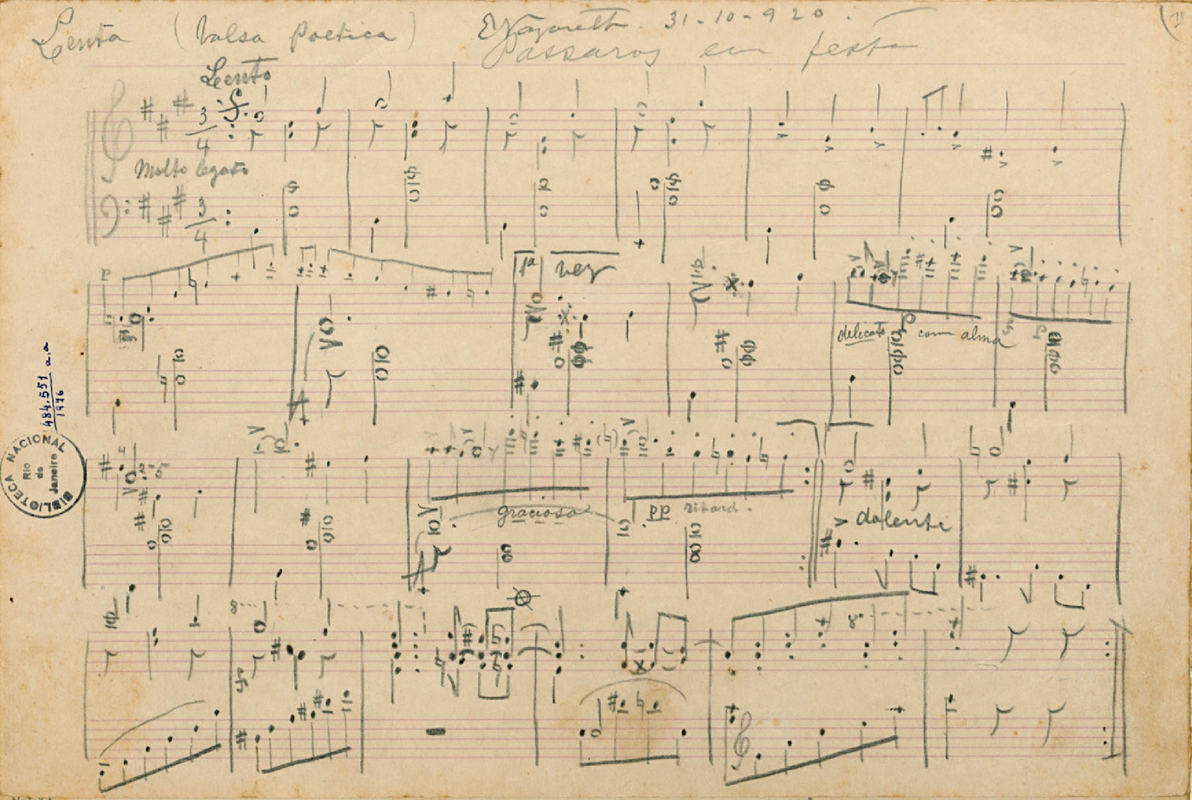 Lenta (Valsa Poetica) E Nazareth. 31-10-920.
Passaros em festa
Lento
3/4
Molto legato
3/4
1ª vez
delicato com alma
484.551 a.a
1976
BIBLIOTECA NACIONAL
Rio
de
Janeiro
gracioso pp ritard.
dolente
8
8